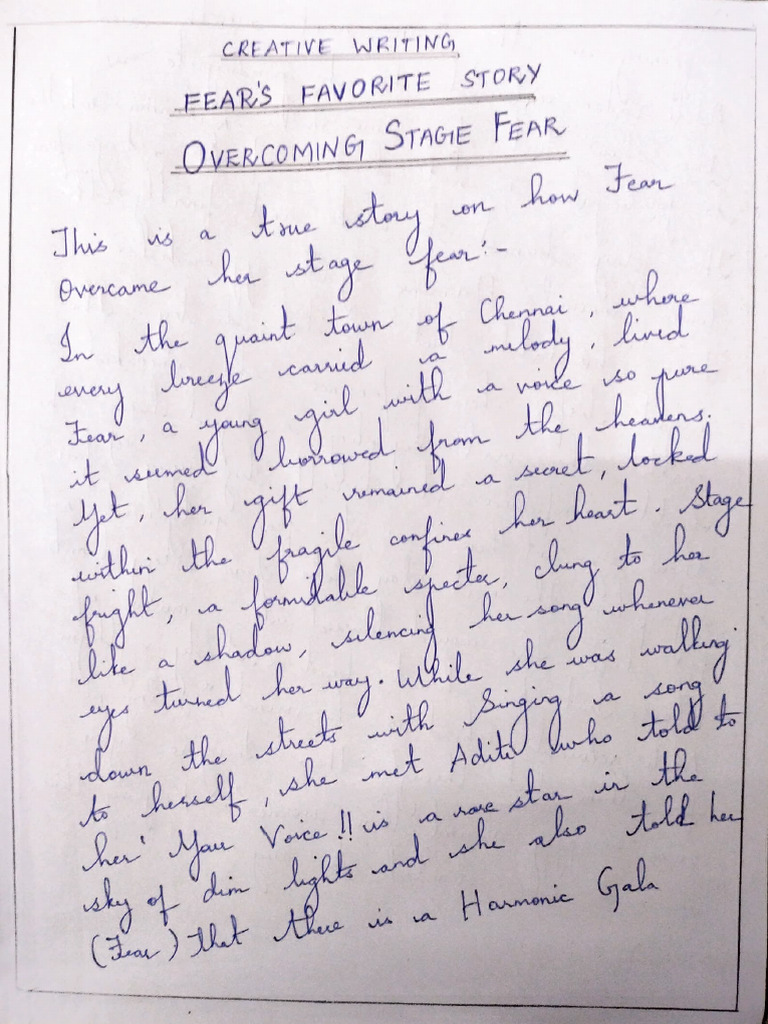 CREATIVE WRITING
FEAR'S FAVORITE STORY
OVERCOMING STAGE FEAR
This is a true story on how Fear
Overcame her stage fear:-
In the quaint town of Chennai, where
every breeze carried a melody, lived
Fear, a young girl with a voice so pure
it seemed borrowed from the heavens.
Yet, her gift remained a secret, locked
within the fragile confines her heart. Stage
fright, a formidable specter, clung to her
like a shadow, silencing her song whenever
eyes turned her way. While she was walking
down the streets with Singing a song
to herself, she met Aditi who told to
her' Your Voice!! is a rare star in the
sky of dim lights and she also told her
(Fear) that there is a Harmonic Gala